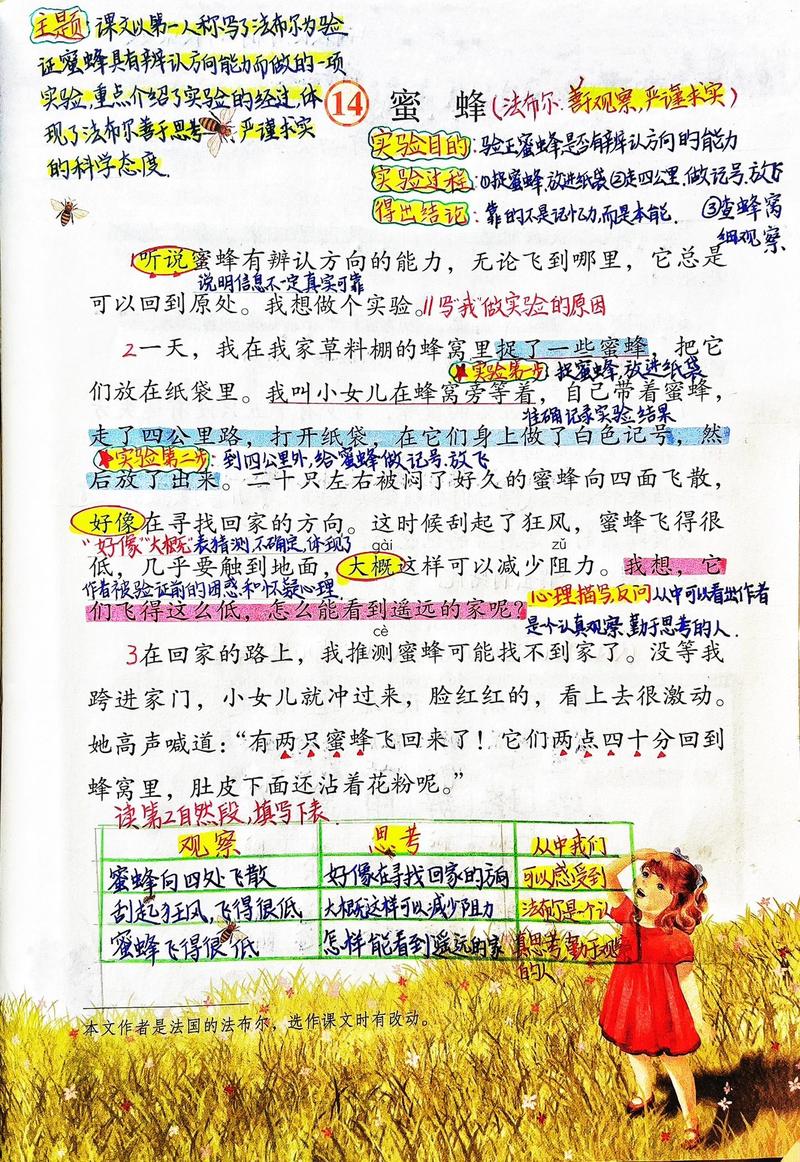 主题:课文以第一人称写了法布尔为验
证蜜蜂具有辨认方向能力而做的一项
实验,重点介绍了实验的经过,体
现了法布尔善于思考、严谨求实
的科学态度.
14 蜜 蜂(法布尔:善于观察,严谨求实)
实验目的:验正蜜蜂是否有辨认方向的能力
实验过程:①捉蜜蜂,放进纸袋②走四公里,做记号,放飞
③查蜂窝
细观察
得出结论:靠的不是记忆力,而是本能.
听说蜜蜂有辨认方向的能力,无论飞到哪里,它总是
说明信息不一定真实可靠
可以回到原处。我想做个实验。//写“我”做实验的原因
2一天,我在我家草料棚的蜂窝里捉了一些蜜蜂,把它
★实验第一步:捉蜜蜂,放进纸袋
们放在纸袋里。我叫小女儿在蜂窝旁等着,自己带着蜜蜂,
准确记录实验结果
走了四公里路,打开纸袋,在它们身上做了白色记号,然
★实验第二步:到四公里外,给蜜蜂做记号.放飞
后放了出来。二十只左右被闷了好久的蜜蜂向四面飞散,
好像在寻找回家的方向。这时候刮起了狂风,蜜蜂飞得很
“好像”“大概”表猜测,不确定,体现了
gài zǔ
低,几乎要触到地面,大概这样可以减少阻力。我想,它
作者被验证前的困惑和怀疑心理.
们飞得这么低,怎么能看到遥远的家呢?
心理描写,反问从中可以看出作者
是个认真观察,勤于思考的人.
cè
3在回家的路上,我推测蜜蜂可能找不到家了。没等我
跨进家门,小女儿就冲过来,脸红红的,看上去很激动。
她高声喊道:“有两只蜜蜂飞回来了!它们两点四十分回到
蜂窝里,肚皮下面还沾着花粉呢。”
读第2自然段,填写下表.
观察 思考 从中我们
蜜蜂向四处飞散 好像在寻找回家的方向 可以感受到
刮起狂风,飞得很低 大概这样可以减少阻力 法布尔是个认
蜜蜂飞得很低 怎样能看到遥远的家 真思考,勤于观察
的人
本文作者是法国的法布尔,选作课文时有改动。